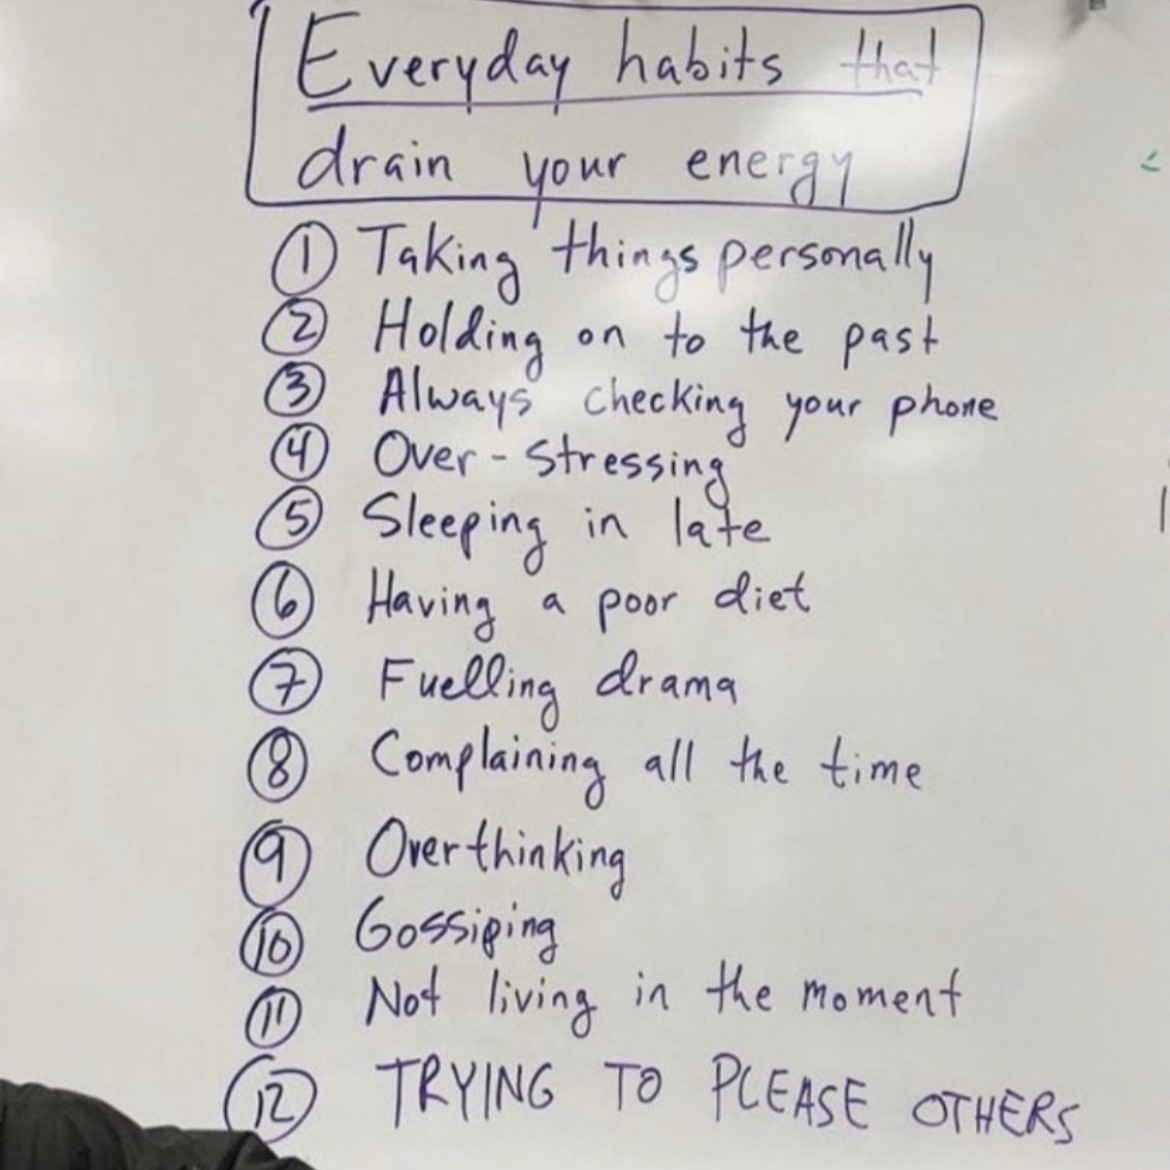 Everyday habits that
drain your energy
1 Taking things personally
2 Holding on to the past
3 Always checking your phone
4 Over-stressing
5 Sleeping in late
6 Having a poor diet
7 Fuelling drama
8 Complaining all the time
9 Overthinking
10 Gossiping
11 Not living in the moment
12 TRYING TO PLEASE OTHERS